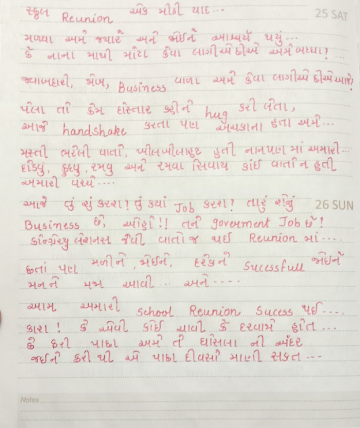 સ્કૂલ Reunion એક મીઠી યાદ...
25 SAT
મળ્યા અમે જ્યારે અમે જોઈને આશ્ચર્ય થયું...
કે નાના માથી મોટા કેવા લાગીએ છીએ અમે બાધા!...
જવાબદારી, Business વાળા અમે કેવા લાગીએ છીએ આજે!
પેલા તો કેમ દોસ્તાર કહીને hug કરી લેતા,
આજે handshake કરતા પણ અચકાના હતા અમે...
મસ્તી ભરેલી વાતો, ખીલખીલાહટ હતી નાનપણ માં અમારી...
દોડવું, કુદવું, રમવું અને રમવા સિવાય કાંઈ વાતો ન હતી
અમારી વચ્ચે....
આજે તું શું કરશ! તું ક્યાં Job કરશ! તારું શેનું
26 SUN
Business છે, ઓહો!! તને goverment Job છે!
કોંગ્રેચ્યુલેશનસ જેવી વાતો જ થઈ Reunion માં...
છતાં પણ મળીને, ભેટીને, દરેકને Sucessfull જોઈને
મનને મજા આવી.. અને....
આમ અમારી School Reunion Sucess થઈ....
કાશ! કે એવી કાંઈ ચાવી કે દરવાજો હોત...
કે ફરી પાછા અમે તે ની અંદર
જઈને ફરી થી એ પાછા દિવસો માણી સકત...
Notes